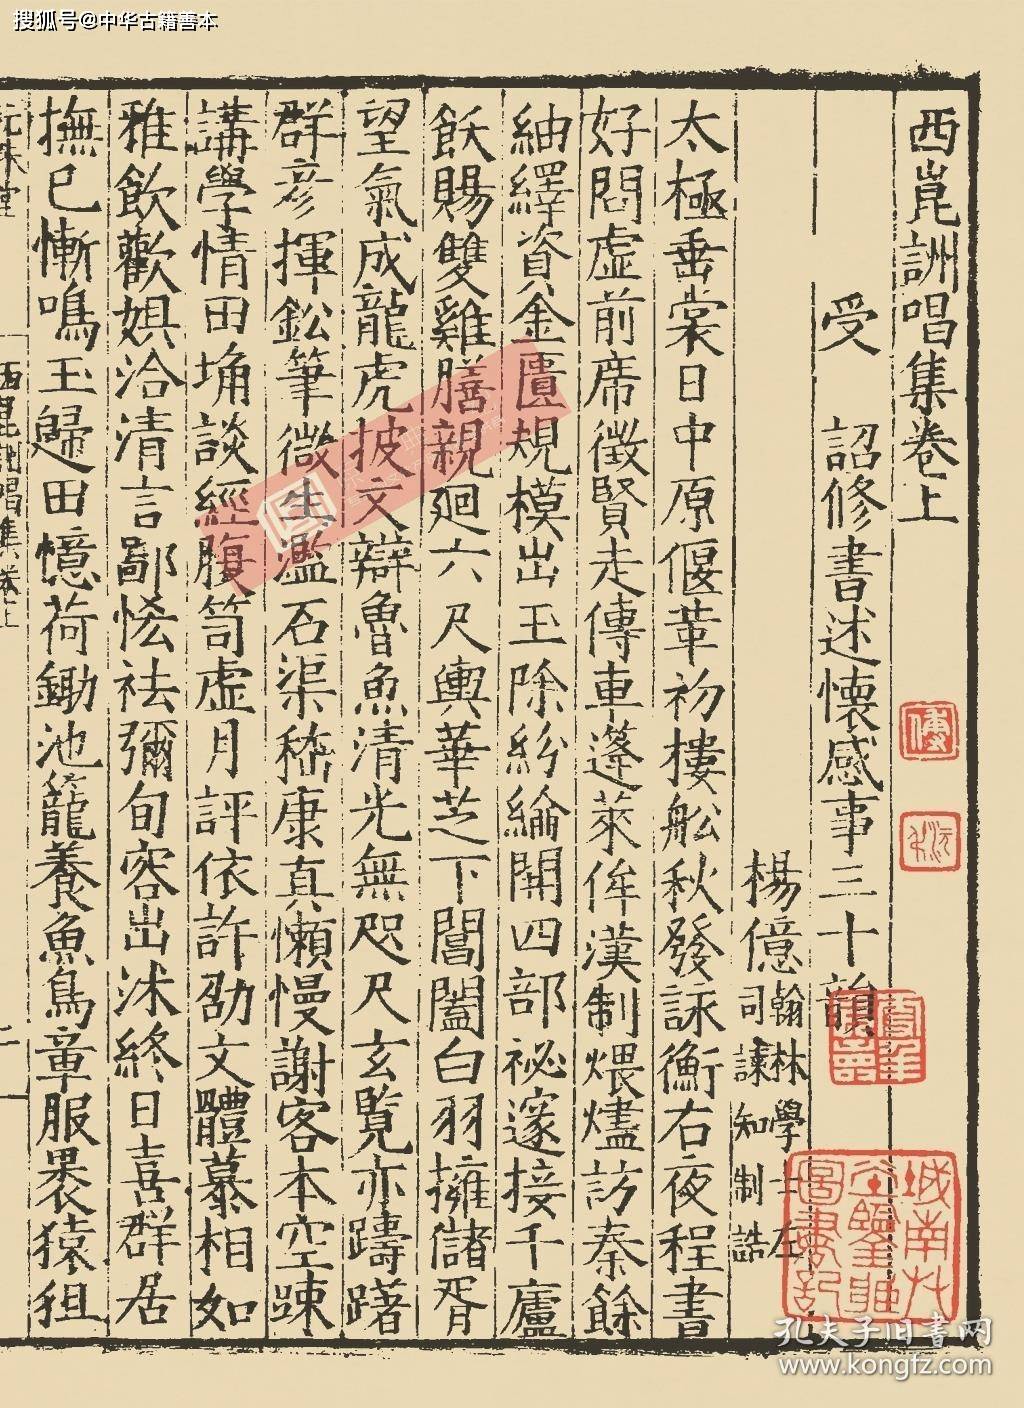 搜狐号@中华古籍善本
西崑詶唱集卷上
受 詔修書述懐感事三十韻
楊億翰林學士左司諫知制誥
太極垂裳日中原偃革初樓舩秋發詠衡右夜程書
好問虚前席徵賢走傳車蓬萊侔漢制煨燼訪秦餘
紬繹資金匱規模出玉除紛綸開四部祕邃接千廬
飫賜雙雞膳親廻六尺輿華芝下閶闔白羽擁儲胥
望氣成龍虎披文辯魯魚清光無咫尺玄覽亦躊躇
群彦揮鈆筆微生濫石渠嵇康真懶慢謝客本空疎
講學情田埆談經腹笥虚月評依許劭文體慕相如
雅飲歡娯洽清言鄙悋祛彌旬容出沐終日喜群居
撫己慚鳴玉歸田憶荷鋤池籠養魚鳥章服裹猿狙
西崑詶唱集卷上
傅
城南艸
孔夫子旧書网
www.kongfz.com